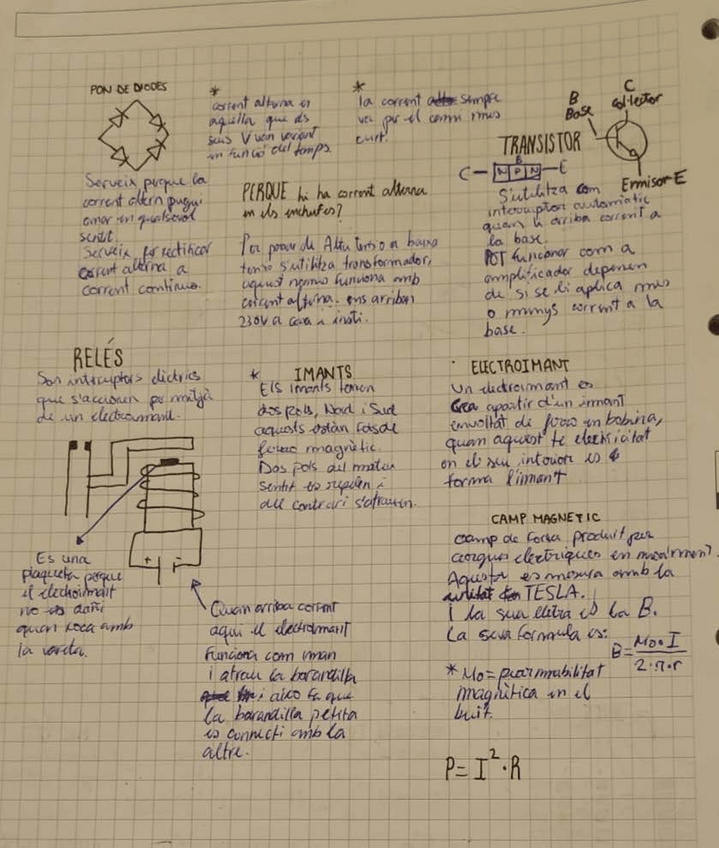 PON DE DIODES
Serveix perque la
corrent altern pugui
anar en qualsevol
sentit.
Serveix per rectificar
corrent alterna a
corrent continua.
*
corrent alterna es
aquella que els
seus V van variant
en funció del temps.
*
la corrent sempre
va per el camí mes
curt.
PERQUE hi ha corrent alterna
en els enchufes?
Per pasar de Alta tensio a baixa
tensio s'utilitza transformador,
aquest només funciona amb
corrent alterna. ens arriben
230V a casa i insti.
TRANSISTOR
C
Col·lector
B
Base
Ermisor E
B
C N P N E
S'utilitza com
interruptor automatic
quan li arriba corrent a
la base.
POT funcionar com a
amplificador depenen
de si se li aplica mes
o menys corrent a la
base.
RELÉS
Son interruptors elèctrics
que s'accionen per mitjà
de un electroimant.
Es una
plaqueta perque
el electroimant
no es dañi
quan toca amb
la vareta.
+ -
Quan arriba corrent
aqui el electroimant
funciona com iman
i atrau la barandilla
i aixo fa que
la barandilla petita
es connecti amb la
altre.
* IMANTS
Els imants tenen
dos pols, Nord i Sud
aquests estàn
magnètic.
Dos pols del mateix
sentit es repelen i
del contrari s'atrauen.
ELECTROIMANT
Un electroimant es
Crea apartir d'un imant
envoltat de en bobina,
quan aquest te electricitat
en el seu interior es
forma l'imant
CAMP MAGNETIC
camp de forsa produit per
carguas electriques en moviment.
Aquest es mesura amb la
unitat TESLA.
i la seua lletra és la B.
La seva formula es:
B = Mo · I / 2 · π · r
* Mo = permeabilitat
magnètica en el
buit.
P = I² · R